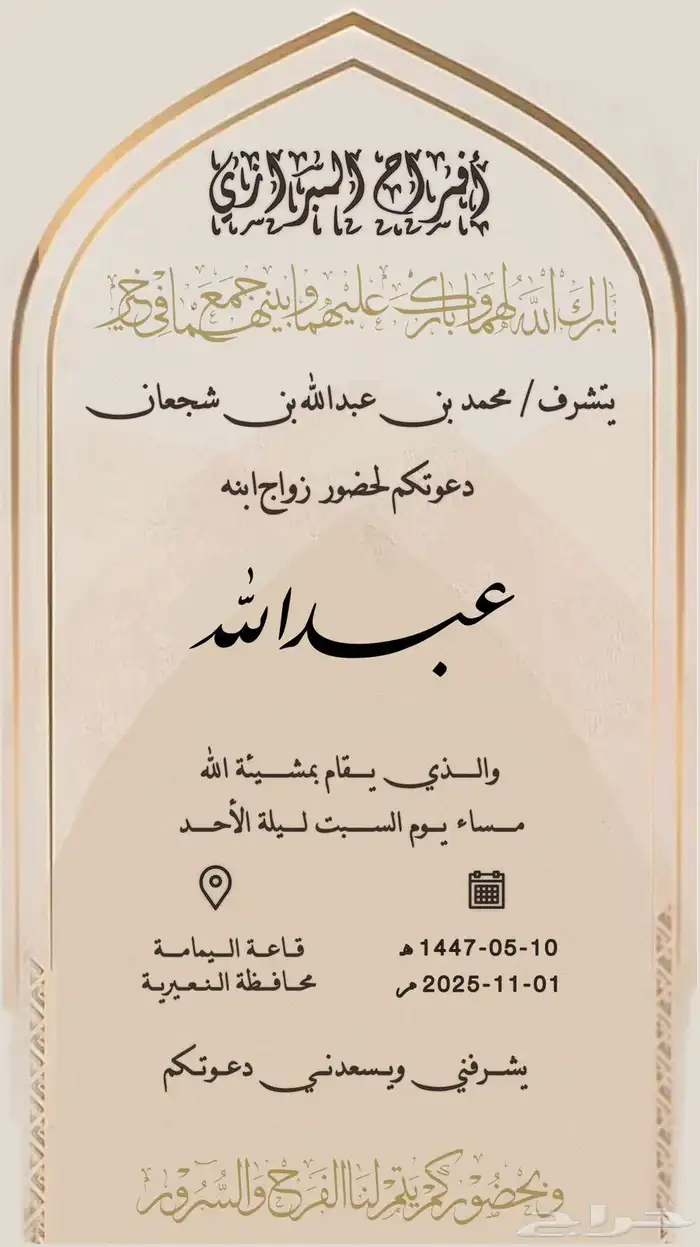 أفراح البرازي
بارك الله لهما وبارك عليهما وجمع بينهما في خير
يتشرف / محمد بن عبدالله بن شجعان
دعوتكم لحضور زواج ابنه
عبدالله
والـذي يـقام بمشـيئة الله
مـساء يـوم السـبت لـيلة الأحـد
1447-05-10 هـ
2025-11-01 م
قـاعـة الـيمامـة
محـافـظة الـنـعـيرية
يشـرفني ويـسعدنـي دعـوتـكم
وبحضوركم يتم لنا الفرح والسرور
حراج